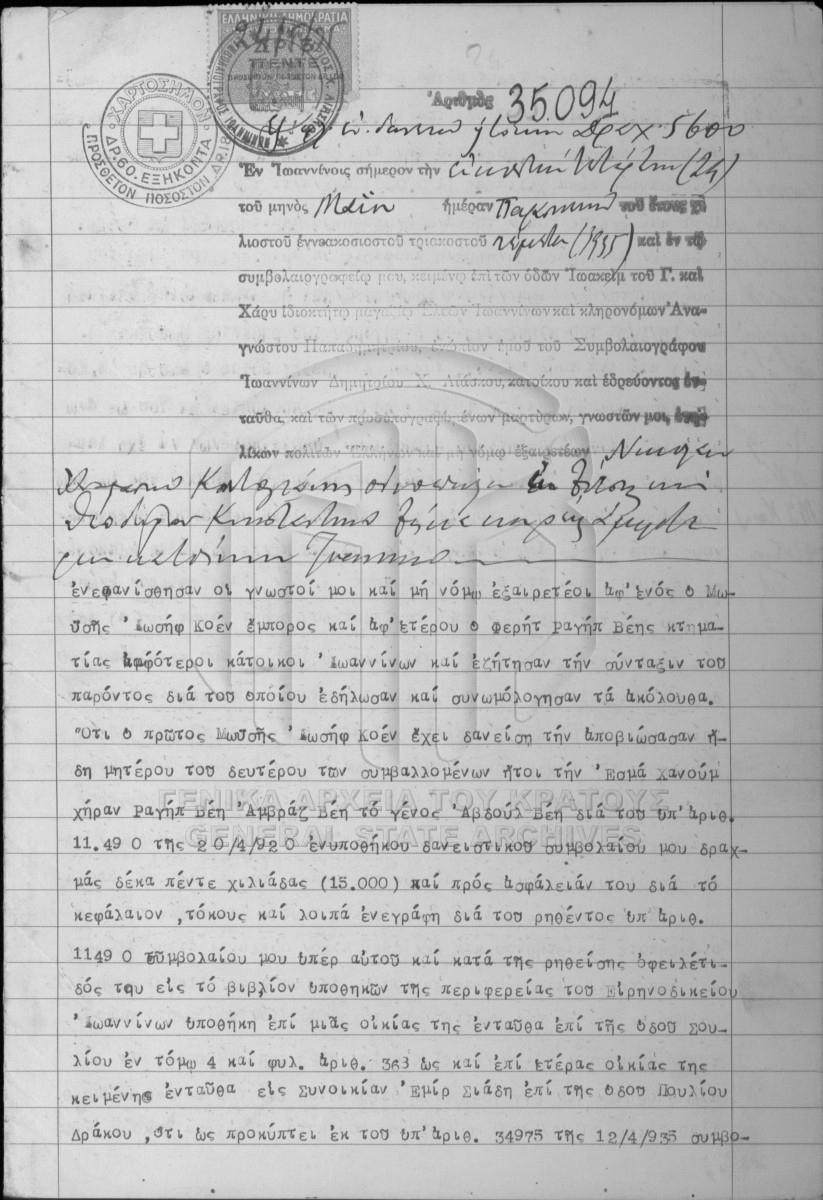 ΕΛΛΗΝΙΚΗ ΔΗΜΟΚΡΑΤΙΑ
ΠΕΝΤΕ
ΧΑΡΤΟΣΗΜΟΝ
ΔΡ. 60. ΕΞΗΚΟΝΤΑ
ΠΡΟΣΘΕΤΟΝ ΠΟΣΟΣΤΟΝ ΔΡ. 18
Ἀριθμὸς 35.094
5600
Ἐν Ἰωαννίνοις σήμερον τὴν εἰκοστὴν τετάρτην (24)
τοῦ μηνὸς Μαΐου ἡμέραν Παρασκευὴν τοῦ ἔτους χι
λιοστοῦ ἐννεακοσιοστοῦ τριακοστοῦ πέμπτου (1935) καὶ ἐν τῷ
συμβολαιογραφείῳ μου, κειμένῳ ἐπὶ τῶν ὁδῶν Ἰωακεὶμ τοῦ Γ. καὶ
Χάρυ ἰδιοκτήτῳ μαγαζίῳ Ἐλεῶν Ἰωαννίνων καὶ κληρονόμων Ἀνα-
γνώστου Παπαδημητρίου, ἐνώπιον ἐμοῦ τοῦ Συμβολαιογράφου
Ἰωαννίνων Δημητρίου Χ. Λιάσκου, κατοίκου καὶ ἑδρεύοντος ἐν-
ταῦθα, καὶ τῶν προσυπογραφομένων μαρτύρων, γνωστῶν μοι, ἐνη-
λίκων πολιτῶν Ἑλλήνων καὶ μὴ νόμῳ ἐξαιρετέων Νικολάου
ἐνεφανίσθησαν οι γνωστοί μοι καί μή νόμῳ ἐξαιρετέοι ἀφ'ἑνός ο Μω-
ϋσῆς Ἰωσήφ Κοέν ἔμπορος καί ἀφ'ετέρου ο Φερήτ Ραγήπ Βέης κτημα-
τίας ἀμφότεροι κάτοικοι Ἰωαννίνων καί εζήτησαν τήν σύνταξιν του
παρόντος διά του οποίου ἐδήλωσαν καί συνωμολόγησαν τά ἀκόλουθα.
Ὅτι ο πρῶτος Μωϋσῆς Ἰωσήφ Κοέν ἔχει δανείση τήν ἀποβιώσασαν ἤ-
δη μητέρου του δευτέρου των συμβαλλομένων ἤτοι τήν Ἐσμά Χανούμ
χήραν Ραγήπ Βέη Ἀμβράζ Βέη τό γένος Ἀβδούλ Βέη διά του υπ'ἀριθ.
11.49 0 τῆς 20/4/920 ἐνυποθήκου δανειστικού συμβολαίου μου δραχ-
μάς δέκα πέντε χιλιάδας (15.000) καί πρός ἀσφάλειάν του διά τό
κεφάλαιον ,τόκους καί λοιπά ἐνεγράφη διά του ρηθέντος υπ'ἀριθ.
1149 0 συμβολαίου μου υπέρ αὐτού καί κατά τῆς ρηθείσης ὀφειλέτι-
δός του εἰς τό βιβλίον υποθηκών τῆς περιφερείας του Ειρηνοδικείου
Ἰωαννίνων υποθήκη ἐπί μιᾶς οἰκίας της ἐνταύθα ἐπί τῆς οδού Σου-
λίου ἐν τόμῳ 4 καί φυλ. ἀριθ. 363 ὡς καί ἐπί ετέρας οἰκίας της
κειμένης ἐνταύθα εἰς Συνοικίαν Ἐμίρ Σιάδη ἐπί τῆς οδού Πουλίου
Δράκου ,ὅτι ὡς προκύπτει ἐκ του υπ'ἀριθ. 34975 τῆς 12/4/935 συμβο-
ΓΕΝΙΚΑ ΑΡΧΕΙΑ ΤΟΥ ΚΡΑΤΟΥΣ
GENERAL STATE ARCHIVES